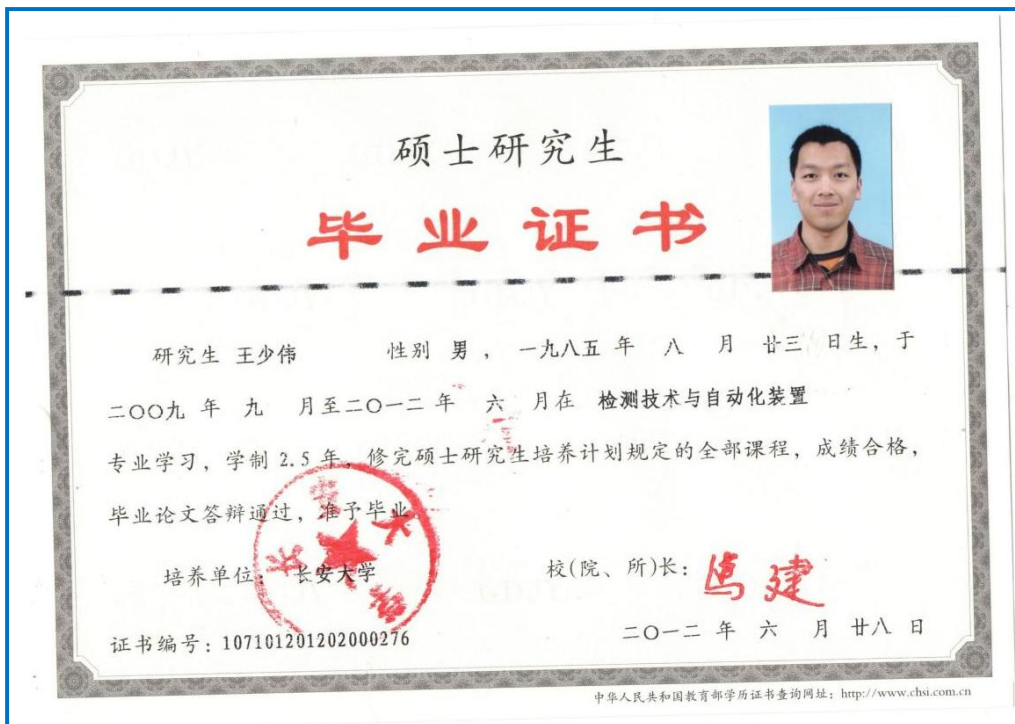 硕士研究生
毕业证书
研究生 王少伟 性别 男 ， 一九八五 年 八 月 廿三 日生，于
二〇〇九 年 九 月至二〇一二 年 六 月在 检测技术与自动化装置
专业学习，学制 2.5 年，修完硕士研究生培养计划规定的全部课程，成绩合格，
毕业论文答辩通过，准予毕业
培养单位： 长安大学
校(院、所)长：马建
证书编号：107101201202000276
二〇一二 年 六 月 廿八 日
中华人民共和国教育部学历证书查询网址：http://www.chsi.com.cn